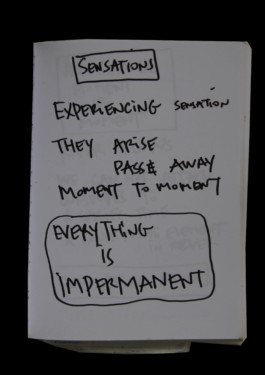 SENSATIONS
EXPERIENCING SENSATION
THEY ARISE
PASSE AWAY
MOMENT TO MOMENT
EVERYTHING
IS
IMPERMANENT